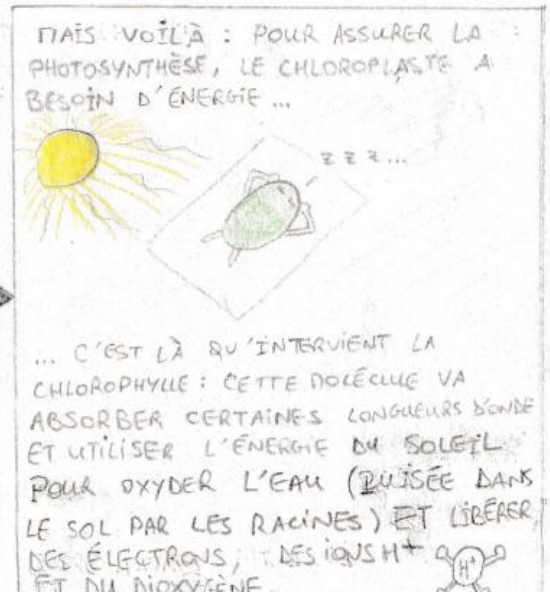 MAIS VOILÀ : POUR ASSURER LA
PHOTOSYNTHÈSE, LE CHLOROPLASTE A
BESOIN D'ÉNERGIE ...
z z z ...
... C'EST LÀ QU'INTERVIENT LA
CHLOROPHYLLE : CETTE MOLÉCULE VA
ABSORBER CERTAINES LONGUEURS D'ONDE
ET UTILISER L'ÉNERGIE DU SOLEIL
POUR OXYDER L'EAU (PUISÉE DANS
LE SOL PAR LES RACINES) ET LIBÉRER
DES ÉLECTRONS, DES IONS H+
H+
ET DU DIOXYGÈNE.